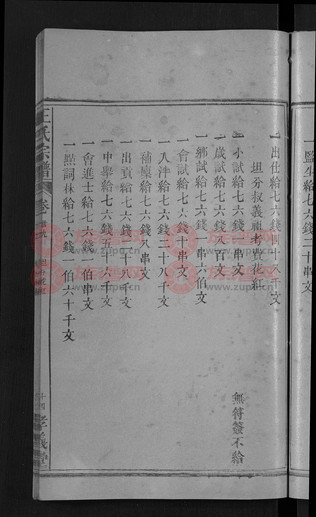 一監生給七六錢二十串文
一出仕給七六錢四十八千文
坦分叔義願考費花紅
一小試給七六錢一串文
一歲試給七六錢八百文
一鄉試給七六錢六串文
一會試給七六錢十串文
一入泮給七六錢三十八串文
一補廩給七六錢八串文
一出貢給七六錢三十八千文
一中舉給七六錢五十六千文
一會進士給七六錢一佰串文
一點詞林給七六錢一佰六十千文
無符簽不給
王氏宗譜
卷
孝義堂
www.zupu.cn